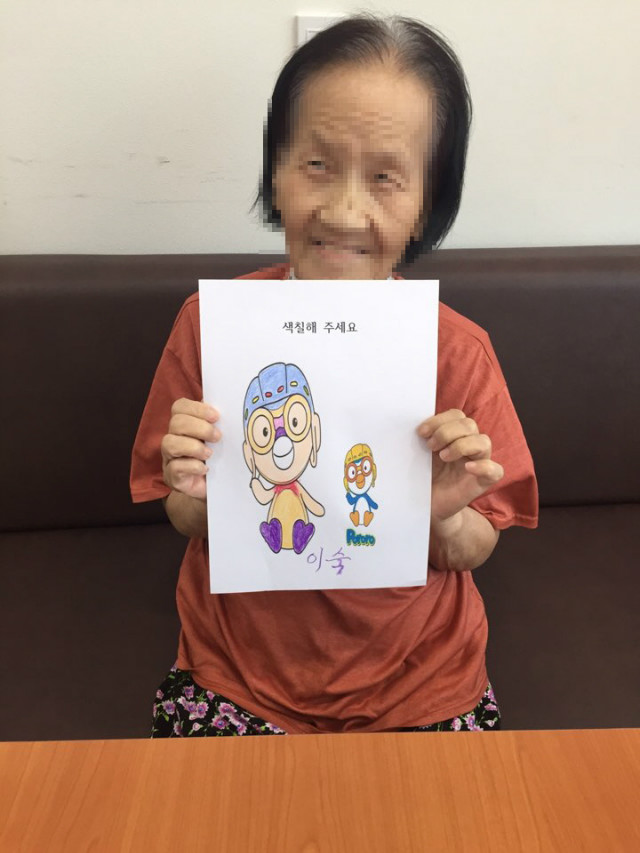 색칠해 주세요
Pororo
이숙